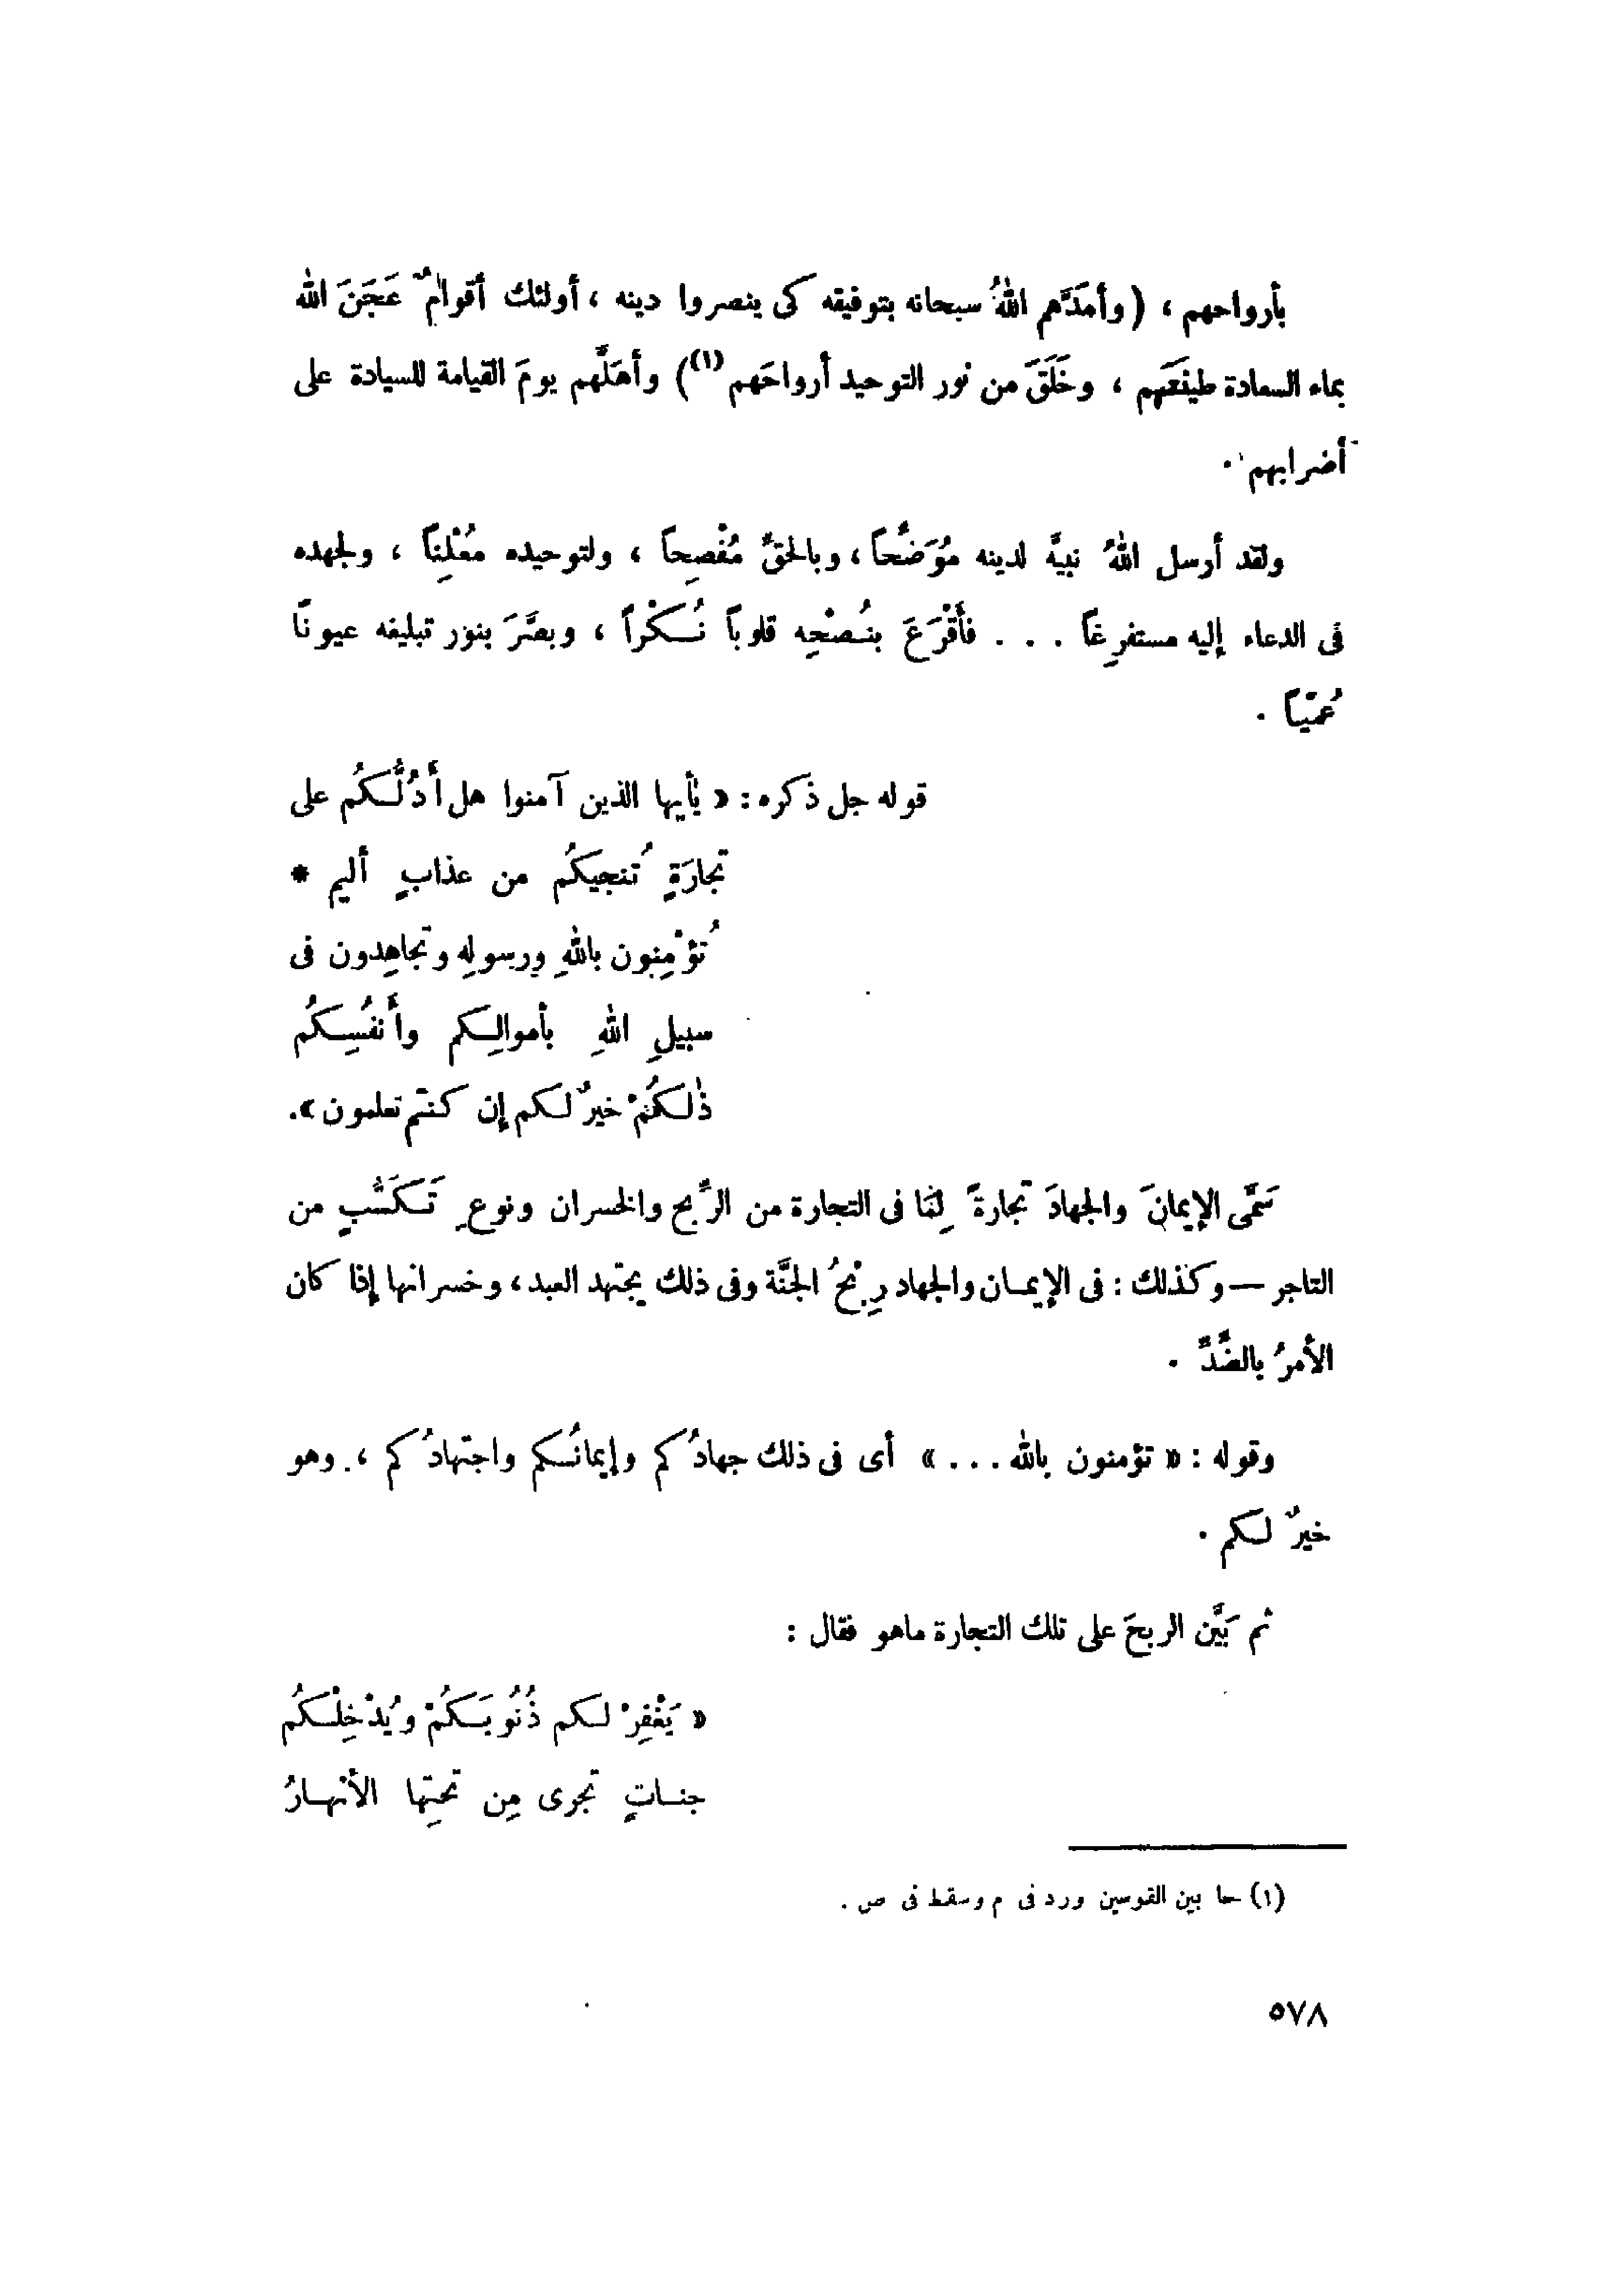 بأرواحهم ، (وأمَدَّهم اللهُ سبحانه بتوفيقه كى ينصروا دينه ، أولئك أقوامٌ عَجَنَ الله
بماء السعادة طينَتَهم ، وخَلَقَ من نور التوحيد أرواحَهم (١)) وأهَلَّهم يومَ القيامة للسيادة على
أضرابهم .
ولقد أرسل اللهُ نبيَّه لدينه مُوَضِّحاً ، وبالحقِّ مُفْصِحاً ، ولتوحيده مُعْلِناً ، ولجهده
فى الدعاء إليه مستفرِغاً . . . فأَقْرَعَ بنُصْحِه قلوباً نُكْراً ، وبصَّرَ بنور تبليغه عيونًا
عُمْياً .
قوله جل ذكره : « يٰأيها الذين آمنوا هل أَدُلُّكُم على
تجارَةٍ تُنجيكُم من عذابٍ أليم *
تُؤْمِنون باللهِ ورسولِه وتجاهِدون فى
سبيلِ اللهِ بأموالِكم وأَنفُسِكُم
ذٰلكُمْ خيرٌ لكم إن كنتم تعلمون ».
سَمَّى الإيمانَ والجهادَ تجارةً لِمَا فى التجارة من الرِّبح والخسران ونوعِ تَكَسُّبٍ من
التاجر — وكذلك : فى الإيمان والجهاد رِبْحُ الجنَّة وفى ذلك يجتهد العبد ، وخسرانها إذا كان
الأمرُ بالضِّدِّ .
وقوله : « تؤمنون بالله . . . » أى فى ذلك جهادُكم وإيمانُكم واجتهادُكم ، وهو
خيرٌ لكم .
ثم بَيَّن الربحَ على تلك التجارة ماهو فقال :
« يَغْفِرْ لكم ذُنُوبَكُمْ ويُدْخِلْكُم
جناتٍ تجرى مِن تحتِها الأنهارُ
(١) ما بين القوسين ورد فى م وسقط فى ص .
٥٧٨